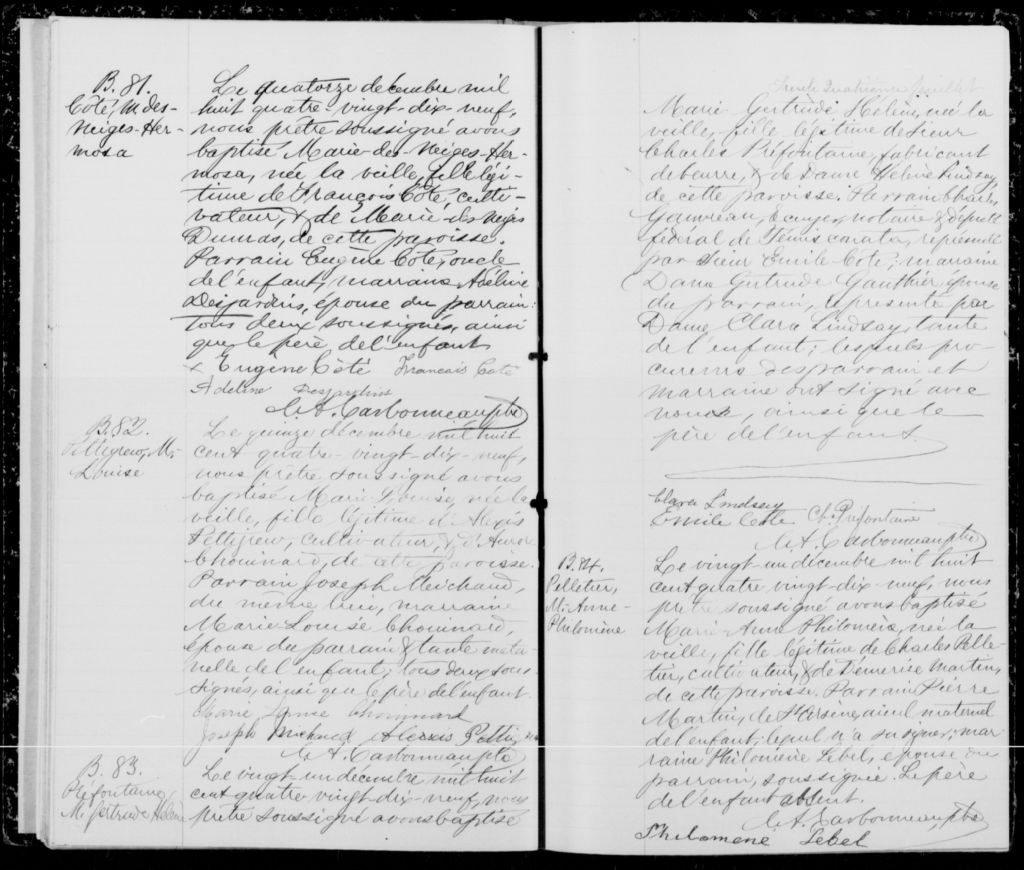 B. 81.
Côté, M. des-
Neiges-Her-
mosa
Le quatorze décembre mil
huit quatre-vingt-dix-neuf,
nous prêtre soussigné avons
baptisé Marie-des-Neiges-Her-
mosa, née la veille, fille légi-
time de François Côté, culti-
vateur, & de Marie-des-Neiges
Dumas, de cette paroisse.
Parrain Eugène Coté, oncle
de l'enfant, marraine Adéline
Desjardins, épouse du parrain:
tous deux soussignés, ainsi
que le père de l'enfant
x Eugène Côté François Coté
Adeline Desjardins
A. Carbonneau, ptre
B. 82.
Pettigrew, M.
Louise
Le quinze décembre mil huit
cent quatre-vingt-dix-neuf,
nous prêtre soussigné avons
baptisé Marie Louise, née la
veille, fille légitime d'Alexis
Pettigrew, cultivateur, & d'Aurore
Chouinard, de cette paroisse.
Parrain Joseph Michaud,
du même lieu, marraine
Marie-Louise Chouinard,
épouse du parrain & tante mater-
nelle de l'enfant; tous deux sous-
signés, ainsi que le père de l'enfant.
Marie Louise Chouinard
Joseph Michaud Alexis
A. Carbonneau, ptre
B. 83.
Préfontaine,
M. Gertrude Hélène
Le vingt-un décembre mil huit
cent quatre-vingt-dix-neuf, nous
prêtre soussigné avons baptisé
Trente Quatrième feuillet
Marie-Gertrude Hélène, née la
veille, fille légitime de Sieur
Charles Préfontaine, fabricant
de beurre, & de Dame Hélène Lindsay,
de cette paroisse. Parrain Charles
Gauvreau, Ecuyer, notaire & député
fédéral de Témiscouata, représenté
par Sieur Emile Coté; marraine
Dame Gertrude Gauthier, épouse
du parrain, représenté par
Dame Clara Lindsay, tante
de l'enfant; lesquels pro-
cureurs des parrain et
marraine ont signé avec
nous, ainsi que le
père de l'enfant.
Clara Lindsay
Emile Cote Ch. Préfontaine
A. Carbonneau, ptre
B. 84.
Pelletier,
M. Anne-
Philomène
Le vingt-un décembre mil huit
cent quatre-vingt-dix-neuf, nous
prêtre soussigné avons baptisé
Marie-Anne Philomène, née la
veille, fille légitime de Charles Pelle-
tier, cultivateur, & de Démerise Martin,
de cette paroisse. Parrain Pierre
Martin, de St Arsène, aieul maternel
de l'enfant; lequel n'a su signer; mar-
raine Philomène Lebel, epouse du
parrain, soussignée. Le père
de l'enfant absent.
A. Carbonneau, ptre
Philomene Lebel